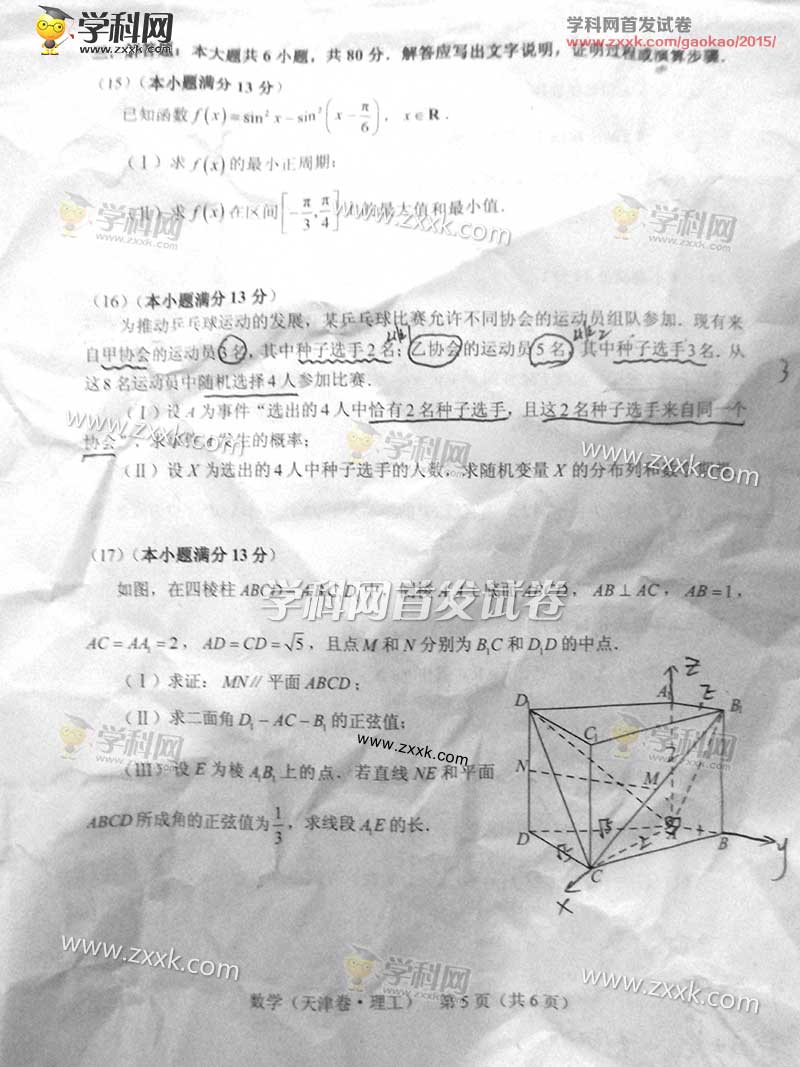 学科网
www.zxxk.com
学科网首发试卷
www.zxxk.com/gaokao/2015/
本大题共 6 小题，共 80 分．解答应写出文字说明，证明过程或演算步骤．
(15)（本小题满分 13 分）
已知函数 f(x)=sin² x−sin²(x−π/6)，x∈R．
（Ⅰ）求 f(x) 的最小正周期；
（Ⅱ）求 f(x) 在区间[−π/3,π/4]内的最大值和最小值．
学科网
www.zxxk.com
学科网
www.zxxk.com
(16)（本小题满分 13 分）
为推动乒乓球运动的发展，某乒乓球比赛允许不同协会的运动员组队参加．现有来
自甲协会的运动员3名，其中种子选手2名；乙协会的运动员5名，其中种子选手3名．从
3
这8名运动员中随机选择4人参加比赛．
（Ⅰ）设 A 为事件“选出的4人中恰有2名种子选手，且这2名种子选手来自同一个
协会”，求事件 A 发生的概率；
www.zxxk.com
学科网
www.zxxk.com
（Ⅱ）设 X 为选出的4人中种子选手的人数，求随机变量 X 的分布列和数学期望
(17)（本小题满分 13 分）
学科网首发试卷
如图，在四棱柱 ABCD AB⊥AC，AB=1，
AC=AA₁=2，AD=CD=√5，且点 M 和 N 分别为 B₁C 和 D₁D 的中点．
（Ⅰ）求证：MN∥平面 ABCD；
（Ⅱ）求二面角 D₁−AC−B₁ 的正弦值；
（Ⅲ）设 E 为棱 A₁B₁ 上的点．若直线 NE 和平面
ABCD 所成角的正弦值为 1/3，求线段 A₁E 的长．
学科网
www.zxxk.com
www.zxxk.com
学科网
www.zxxk.com
z
D₁ A₁ z B₁
C₁
2
N M
D √5 A 1 B
√5 2 y
C
x
www.zxxk.com
学科网
www.zxxk.com
www.zxxk.com
数学（天津卷·理工） 第 5 页（共 6 页）